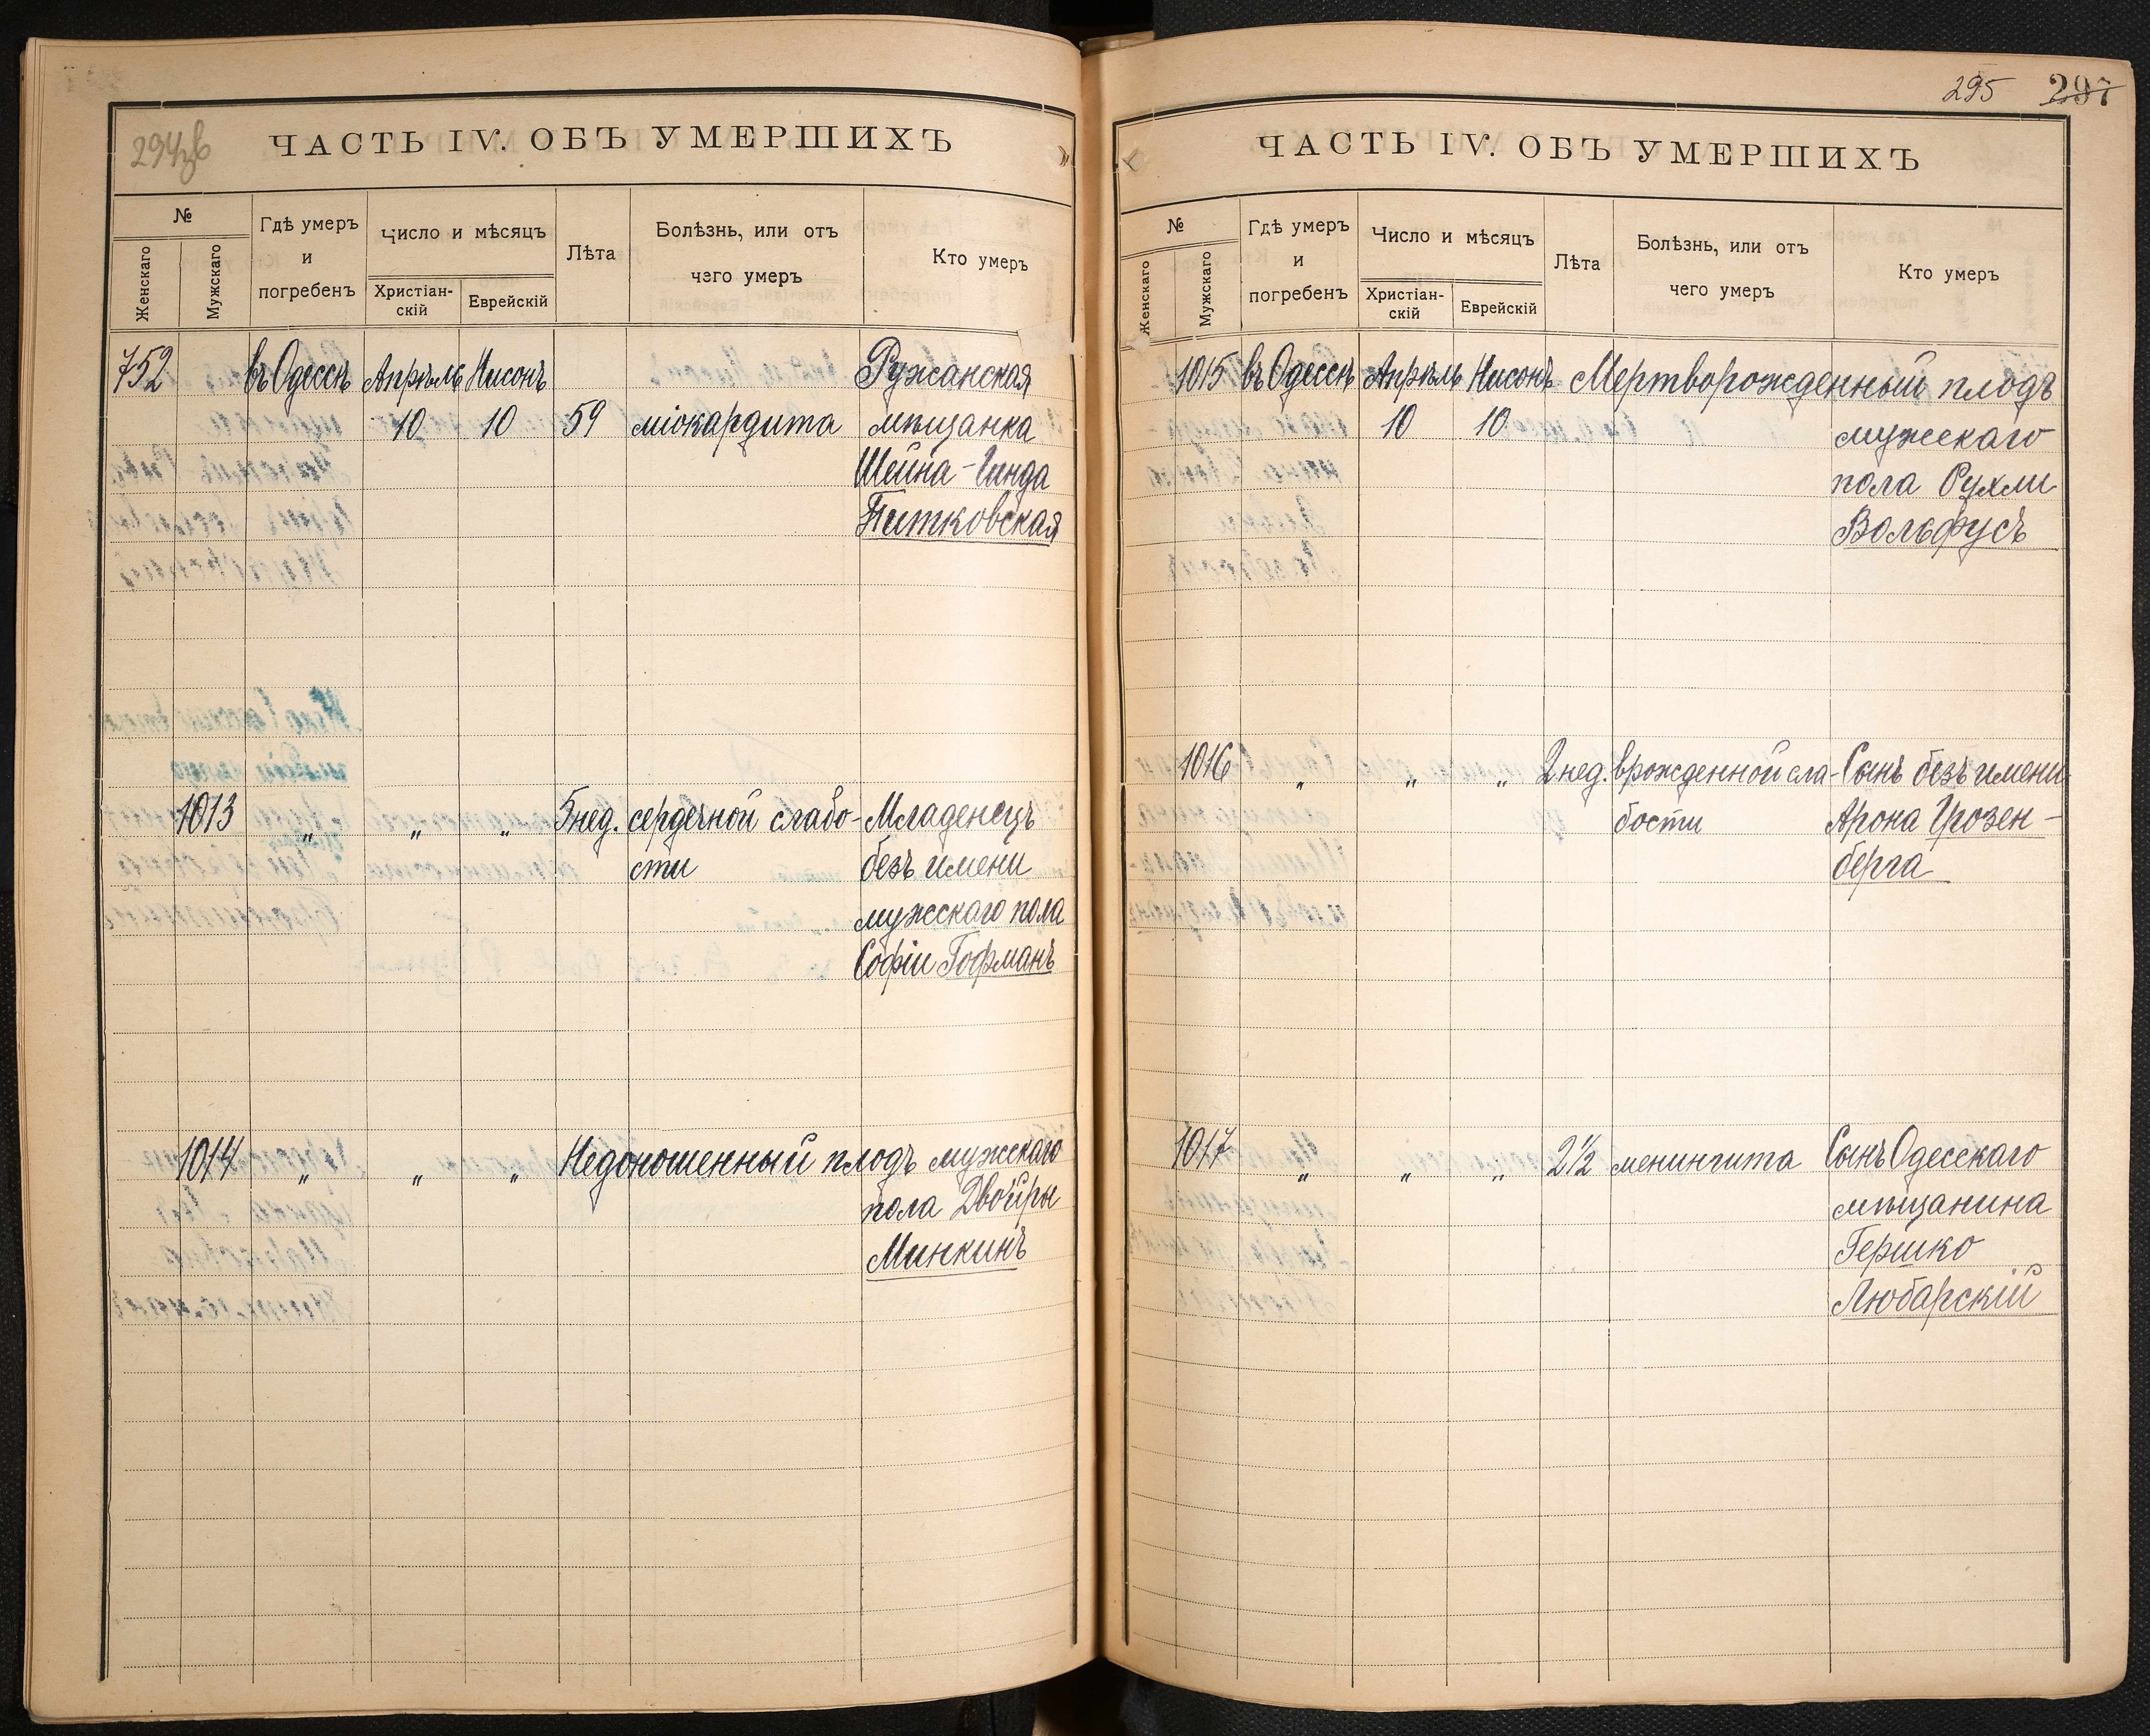 294зв
ЧАСТЬ IV. ОБЪ УМЕРШИХЪ
№
Женскаго
Мужскаго
Гдѣ умеръ
и
погребенъ
Число и мѣсяцъ
Христіан-
скій
Еврейскій
Лѣта
Болѣзнь, или отъ
чего умеръ
Кто умеръ
752 въ Одессѣ Апрѣль Нисонъ Ружанская
10 10 59 міокардита мѣщанка
Шейна-Гинда
Питковская
1013 „ „ „ 5 нед. сердечной слабо- Младенецъ
сти безъ имени
мужескаго пола
Софіи Гофманъ
1014 „ „ „ Недоношенный плодъ мужскаго
пола Двойры
Минкинъ
295 297
ЧАСТЬ IV. ОБЪ УМЕРШИХЪ
№
Женскаго
Мужскаго
Гдѣ умеръ
и
погребенъ
Число и мѣсяцъ
Христіан-
скій
Еврейскій
Лѣта
Болѣзнь, или отъ
чего умеръ
Кто умеръ
1015 въ Одессѣ Апрѣль Нисонъ Мертворожденный плодъ
10 10 мужескаго
пола Рухли
Вольфусъ
1016 „ „ „ 2 нед. врожденной сла- Сынъ безъ имени
бости Арона Грозен-
берга
1017 „ „ „ 2½ менингита Сынъ Одесскаго
мѣщанина
Гершко
Любарскій